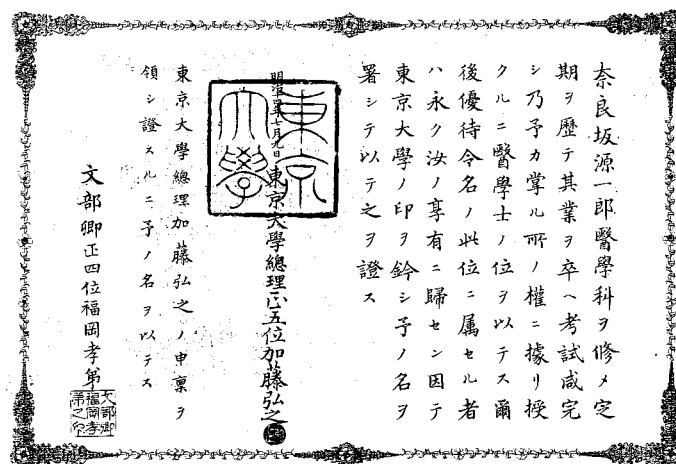 奈良坂源一郎醫學科ヲ修メ定
期ヲ歴テ其業ヲ卒ヘ考試咸完
シ乃予カ掌ル所ノ權ニ據リ授
クルニ醫學士ノ位ヲ以テス爾
後優待令名ノ此位ニ属セル者
ハ永ク汝ノ享有ニ歸セン因テ
東京大學ノ印ヲ鈐シ予ノ名ヲ
署シテ以テ之ヲ證ス
東京大學
明治十四年七月九日東京大學總理正五位加藤弘之
東京大學總理加藤弘之ノ申稟ヲ
領シ證スルニ予ノ名ヲ以テス
文部卿正四位福岡孝弟
文部卿
福岡孝
弟之印